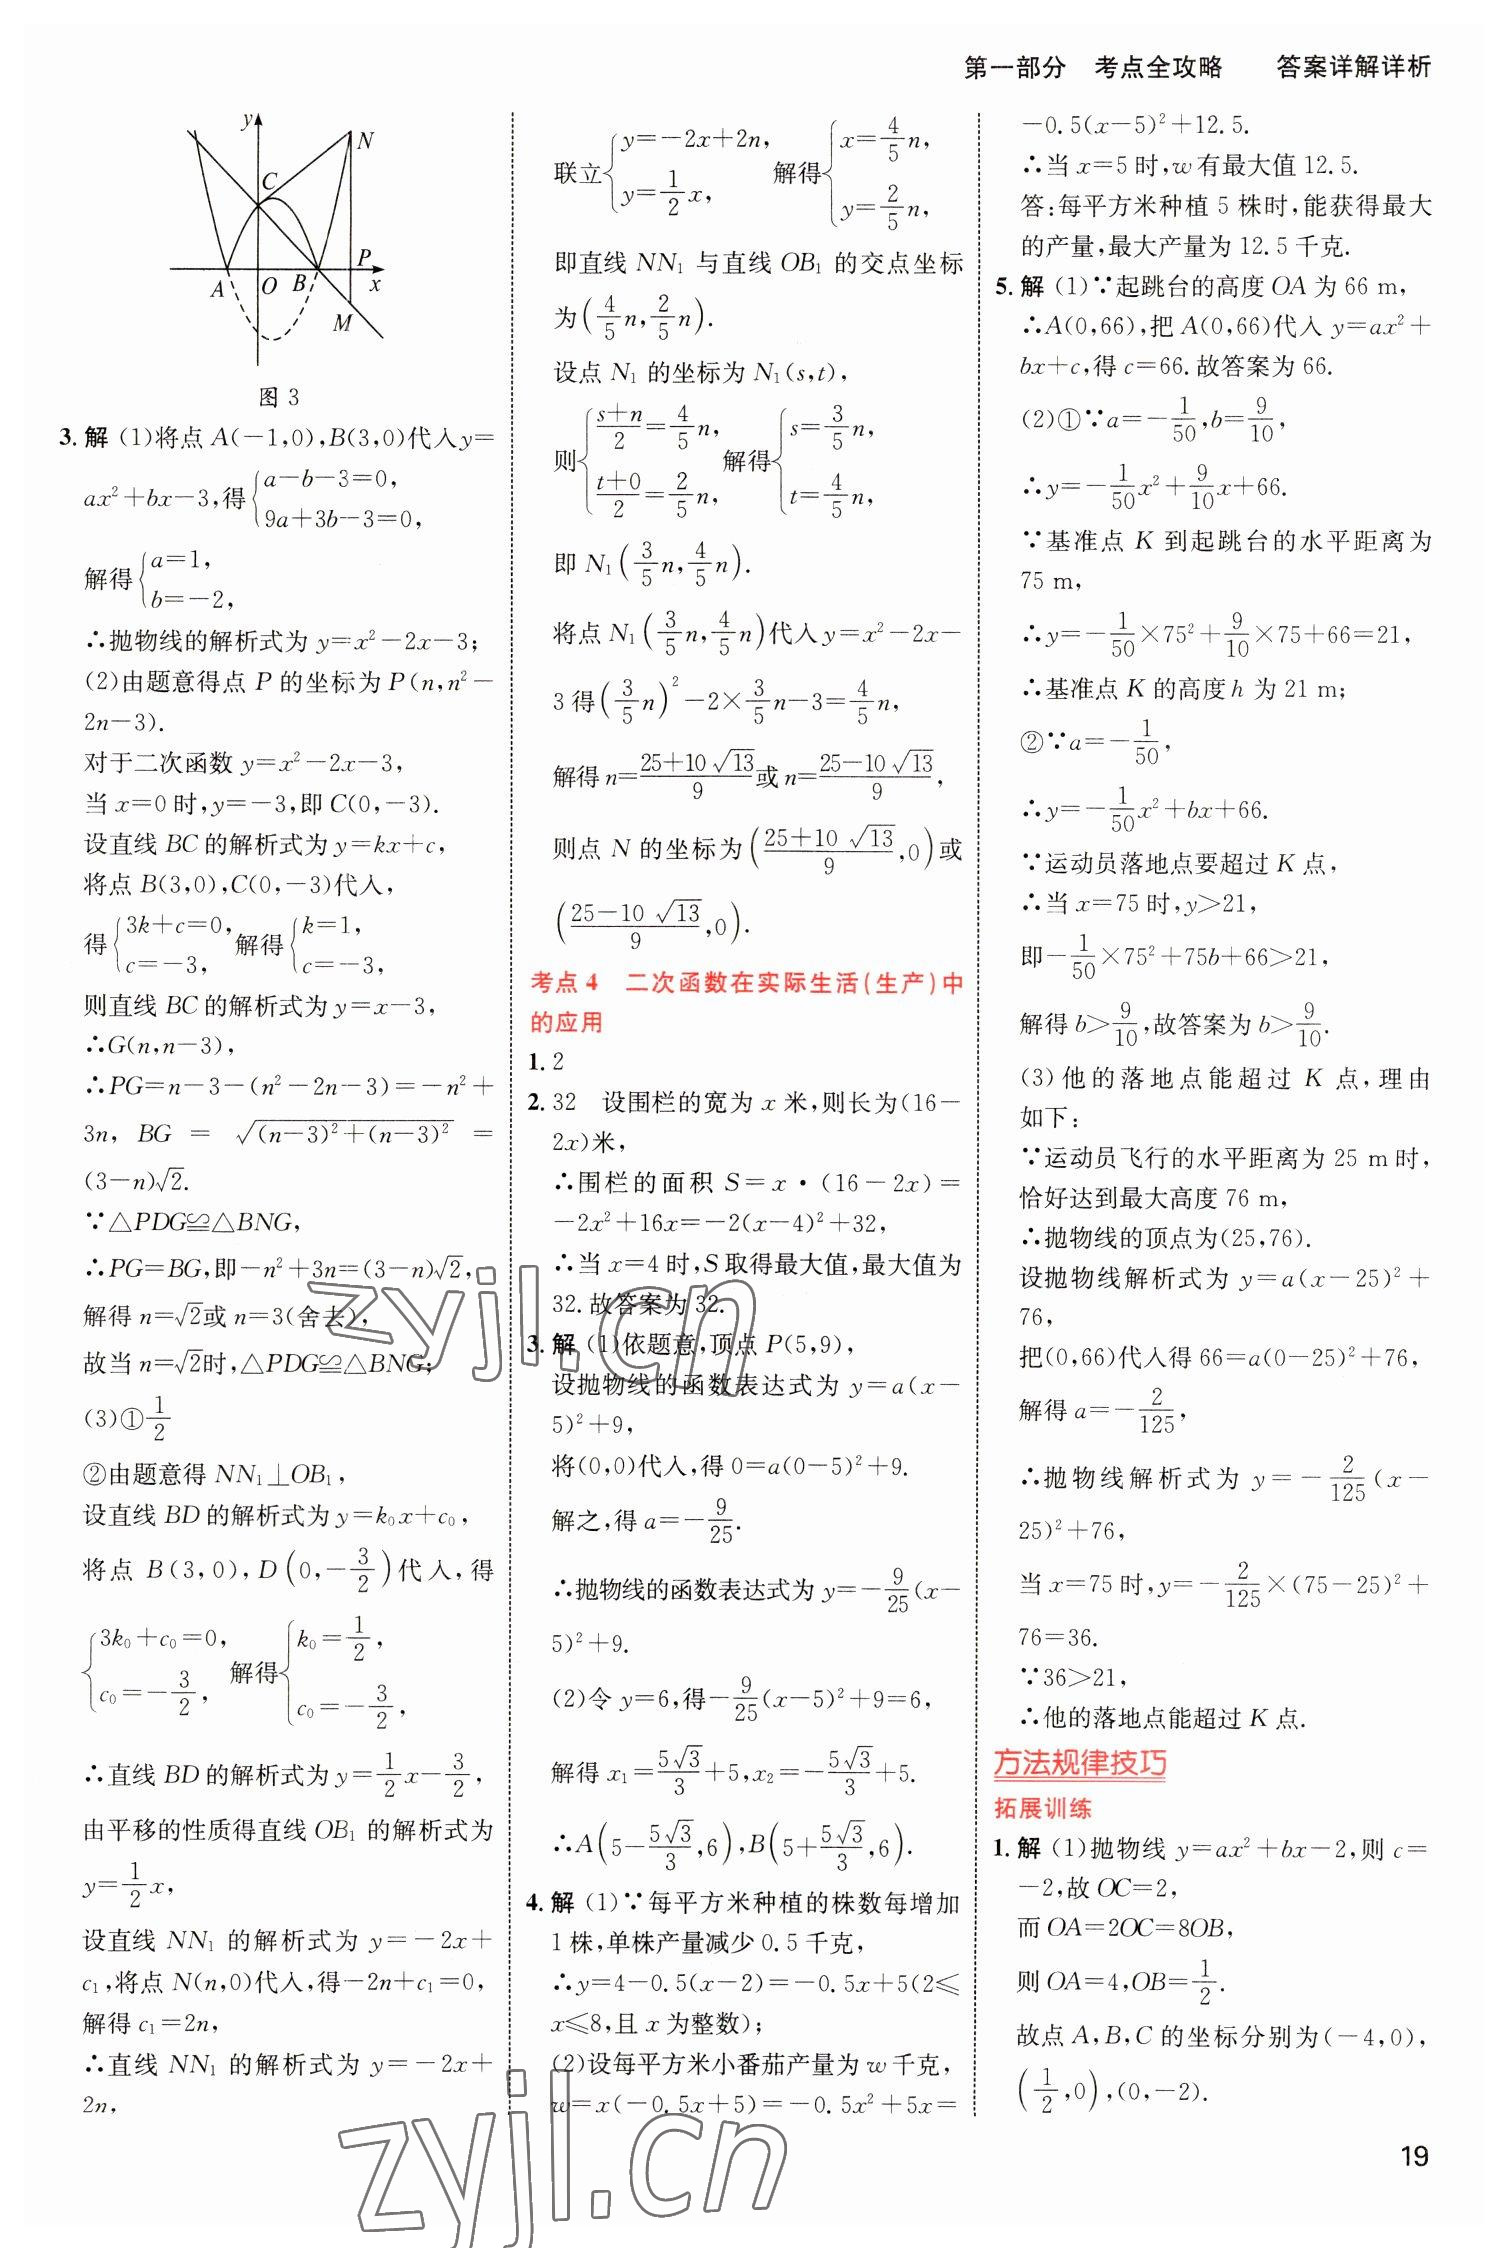 第一部分 考点全攻略 答案详解详析
y
N
C
P
A O B x
M
图 3
3. 解 (1)将点 A(-1,0),B(3,0)代入 y=
ax²+bx-3,得{a-b-3=0,
9a+3b-3=0,
解得{a=1,
b=-2,
∴抛物线的解析式为 y=x²-2x-3;
(2)由题意得点 P 的坐标为 P(n,n²-
2n-3).
对于二次函数 y=x²-2x-3,
当 x=0 时,y=-3,即 C(0,-3).
设直线 BC 的解析式为 y=kx+c,
将点 B(3,0),C(0,-3)代入,
得{3k+c=0, c=-3, 解得{k=1, c=-3,
则直线 BC 的解析式为 y=x-3,
∴G(n,n-3),
∴PG=n-3-(n²-2n-3)=-n²+
3n, BG = √((n-3)²+(n-3)²) =
(3-n)√2.
∵△PDG≌△BNG,
∴PG=BG,即-n²+3n=(3-n)√2,
解得 n=√2或 n=3(舍去),
故当 n=√2时,△PDG≌△BNG;
(3)①1/2
②由题意得 NN₁⊥OB₁,
设直线 BD 的解析式为 y=k₀x+c₀,
将点 B(3,0),D(0,-3/2)代入,得
{3k₀+c₀=0, c₀=-3/2, 解得{k₀=1/2, c₀=-3/2,
∴直线 BD 的解析式为 y=1/2x-3/2,
由平移的性质得直线 OB₁ 的解析式为
y=1/2x,
设直线 NN₁ 的解析式为 y=-2x+
c₁,将点 N(n,0)代入,得-2n+c₁=0,
解得 c₁=2n,
∴直线 NN₁ 的解析式为 y=-2x+
2n,
联立{y=-2x+2n, y=1/2x, 解得{x=4/5n, y=2/5n,
即直线 NN₁ 与直线 OB₁ 的交点坐标
为(4/5n,2/5n).
设点 N₁ 的坐标为 N₁(s,t),
则{(s+n)/2=4/5n, (t+0)/2=2/5n, 解得{s=3/5n, t=4/5n,
即 N₁(3/5n,4/5n).
将点 N₁(3/5n,4/5n)代入 y=x²-2x-
3 得(3/5n)²-2×3/5n-3=4/5n,
解得 n=(25+10√13)/9或 n=(25-10√13)/9,
则点 N 的坐标为((25+10√13)/9,0)或
((25-10√13)/9,0).
考点 4 二次函数在实际生活(生产)中
的应用
1. 2
2. 32 设围栏的宽为 x 米,则长为(16-
2x)米,
∴围栏的面积 S=x·(16-2x)=
-2x²+16x=-2(x-4)²+32,
∴当 x=4 时,S 取得最大值,最大值为
32.故答案为 32.
3. 解 (1)依题意,顶点 P(5,9),
设抛物线的函数表达式为 y=a(x-
5)²+9,
将(0,0)代入,得 0=a(0-5)²+9.
解之,得 a=-9/25.
∴抛物线的函数表达式为 y=-9/25(x-
5)²+9.
(2)令 y=6,得-9/25(x-5)²+9=6,
解得 x₁=5√3/3+5,x₂=-5√3/3+5.
∴A(5-5√3/3,6),B(5+5√3/3,6).
4. 解 (1)∵每平方米种植的株数每增加
1 株,单株产量减少 0.5 千克,
∴y=4-0.5(x-2)=-0.5x+5(2≤
x≤8,且 x 为整数);
(2)设每平方米小番茄产量为 w 千克,
w=x(-0.5x+5)=-0.5x²+5x=
-0.5(x-5)²+12.5.
∴当 x=5 时,w 有最大值 12.5.
答:每平方米种植 5 株时,能获得最大
的产量,最大产量为 12.5 千克.
5. 解 (1)∵起跳台的高度 OA 为 66 m,
∴A(0,66),把 A(0,66)代入 y=ax²+
bx+c,得 c=66.故答案为 66.
(2)①∵a=-1/50,b=9/10,
∴y=-1/50x²+9/10x+66.
∵基准点 K 到起跳台的水平距离为
75 m,
∴y=-1/50×75²+9/10×75+66=21,
∴基准点 K 的高度 h 为 21 m;
②∵a=-1/50,
∴y=-1/50x²+bx+66.
∵运动员落地点要超过 K 点,
∴当 x=75 时,y>21,
即-1/50×75²+75b+66>21,
解得 b>9/10,故答案为 b>9/10.
(3)他的落地点能超过 K 点,理由
如下:
∵运动员飞行的水平距离为 25 m 时,
恰好达到最大高度 76 m,
∴抛物线的顶点为(25,76).
设抛物线解析式为 y=a(x-25)²+
76,
把(0,66)代入得 66=a(0-25)²+76,
解得 a=-2/125,
∴抛物线解析式为 y=-2/125(x-
25)²+76,
当 x=75 时,y=-2/125×(75-25)²+
76=36.
∵36>21,
∴他的落地点能超过 K 点.
方法规律技巧
拓展训练
1. 解 (1)抛物线 y=ax²+bx-2,则 c=
-2,故 OC=2,
而 OA=2OC=8OB,
则 OA=4,OB=1/2.
故点 A,B,C 的坐标分别为(-4,0),
(1/2,0),(0,-2).
19
zyjl.cn
zyjl.cn